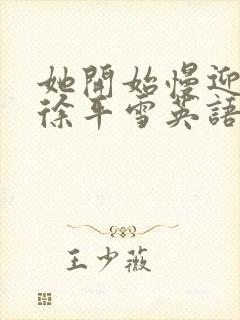 她開始慢迎
徐平雪英語
王少薇